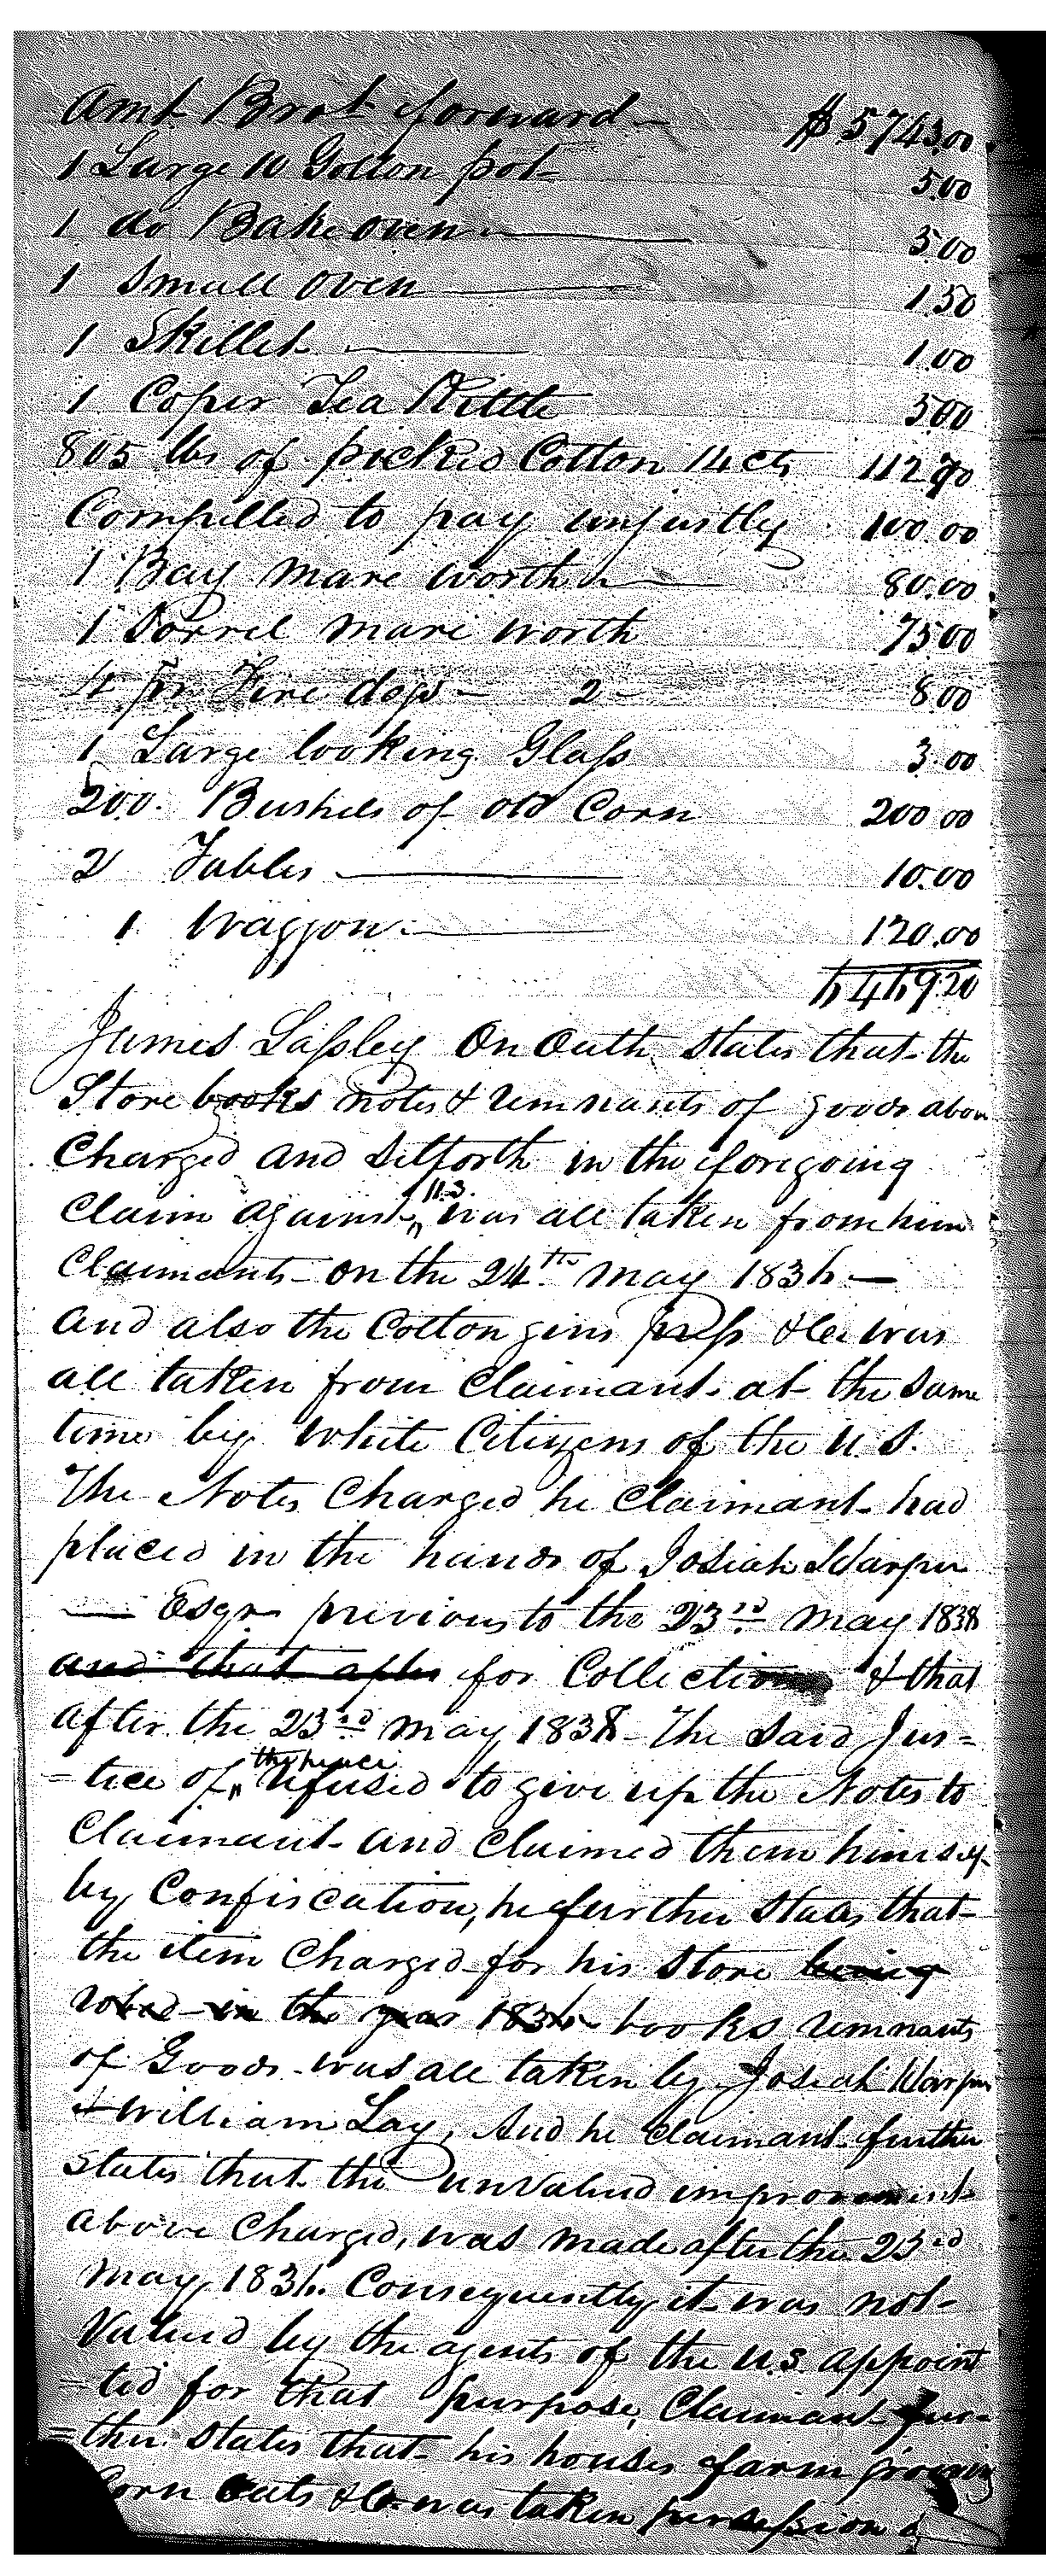 Amt Brot forward — $5743.00
1 Large 10 Gollon pot 5.00
1 do Bake oven — 3.00
1 Small oven — 1.50
1 Skillet — 1.00
1 Coper Tea Kettle 5.00
805 lbs of picked Cotton 14 cts 112 70
Compelled to pay unjustly 100.00
1 Bay mare worth — 80.00
1 Sorrel mare worth 75.00
4 pr Fire dogs — 2 — 8.00
1 Large looking Glass 3.00
200. Bushels of old Corn 200 00
2 Tables — 10.00
1 Waggon — 120.00
6469.20
James Lassley On Oath States that the
Store books notes & remnants of goods above
Charged and Setforth in the foregoing
Claim against U.S. was all taken from him
Claimant on the 24th may 1836 —
and also the Cotton gin press &c was
all taken from Claimant at the same
time by White Citizens of the U.S.
The Notes Charged he Claimant had
placed in the hands of Josiah Harper
— Esqr previous to the 23rd may 1838
and that after for Collection & that
after the 23rd may 1838 The Said Jus=
=tice of the peace refused to give up the Notes to
Claimant and Claimed them himself
by Confiscation, he further States that
the item Charged for his Store being
robed in the year 1836 books remnants
of Goods was all taken by Josiah Harper
& William Lay, And he Claimant further
States that the unvalued improvement
above Charged, was made after the 23rd
May 1836. Consequently it was not
Valued by the agents of the U.S. appoint
=ted for that purpose, Claimant fur=
=ther States that his houses farm growing
Corn Oats &c was taken possession of